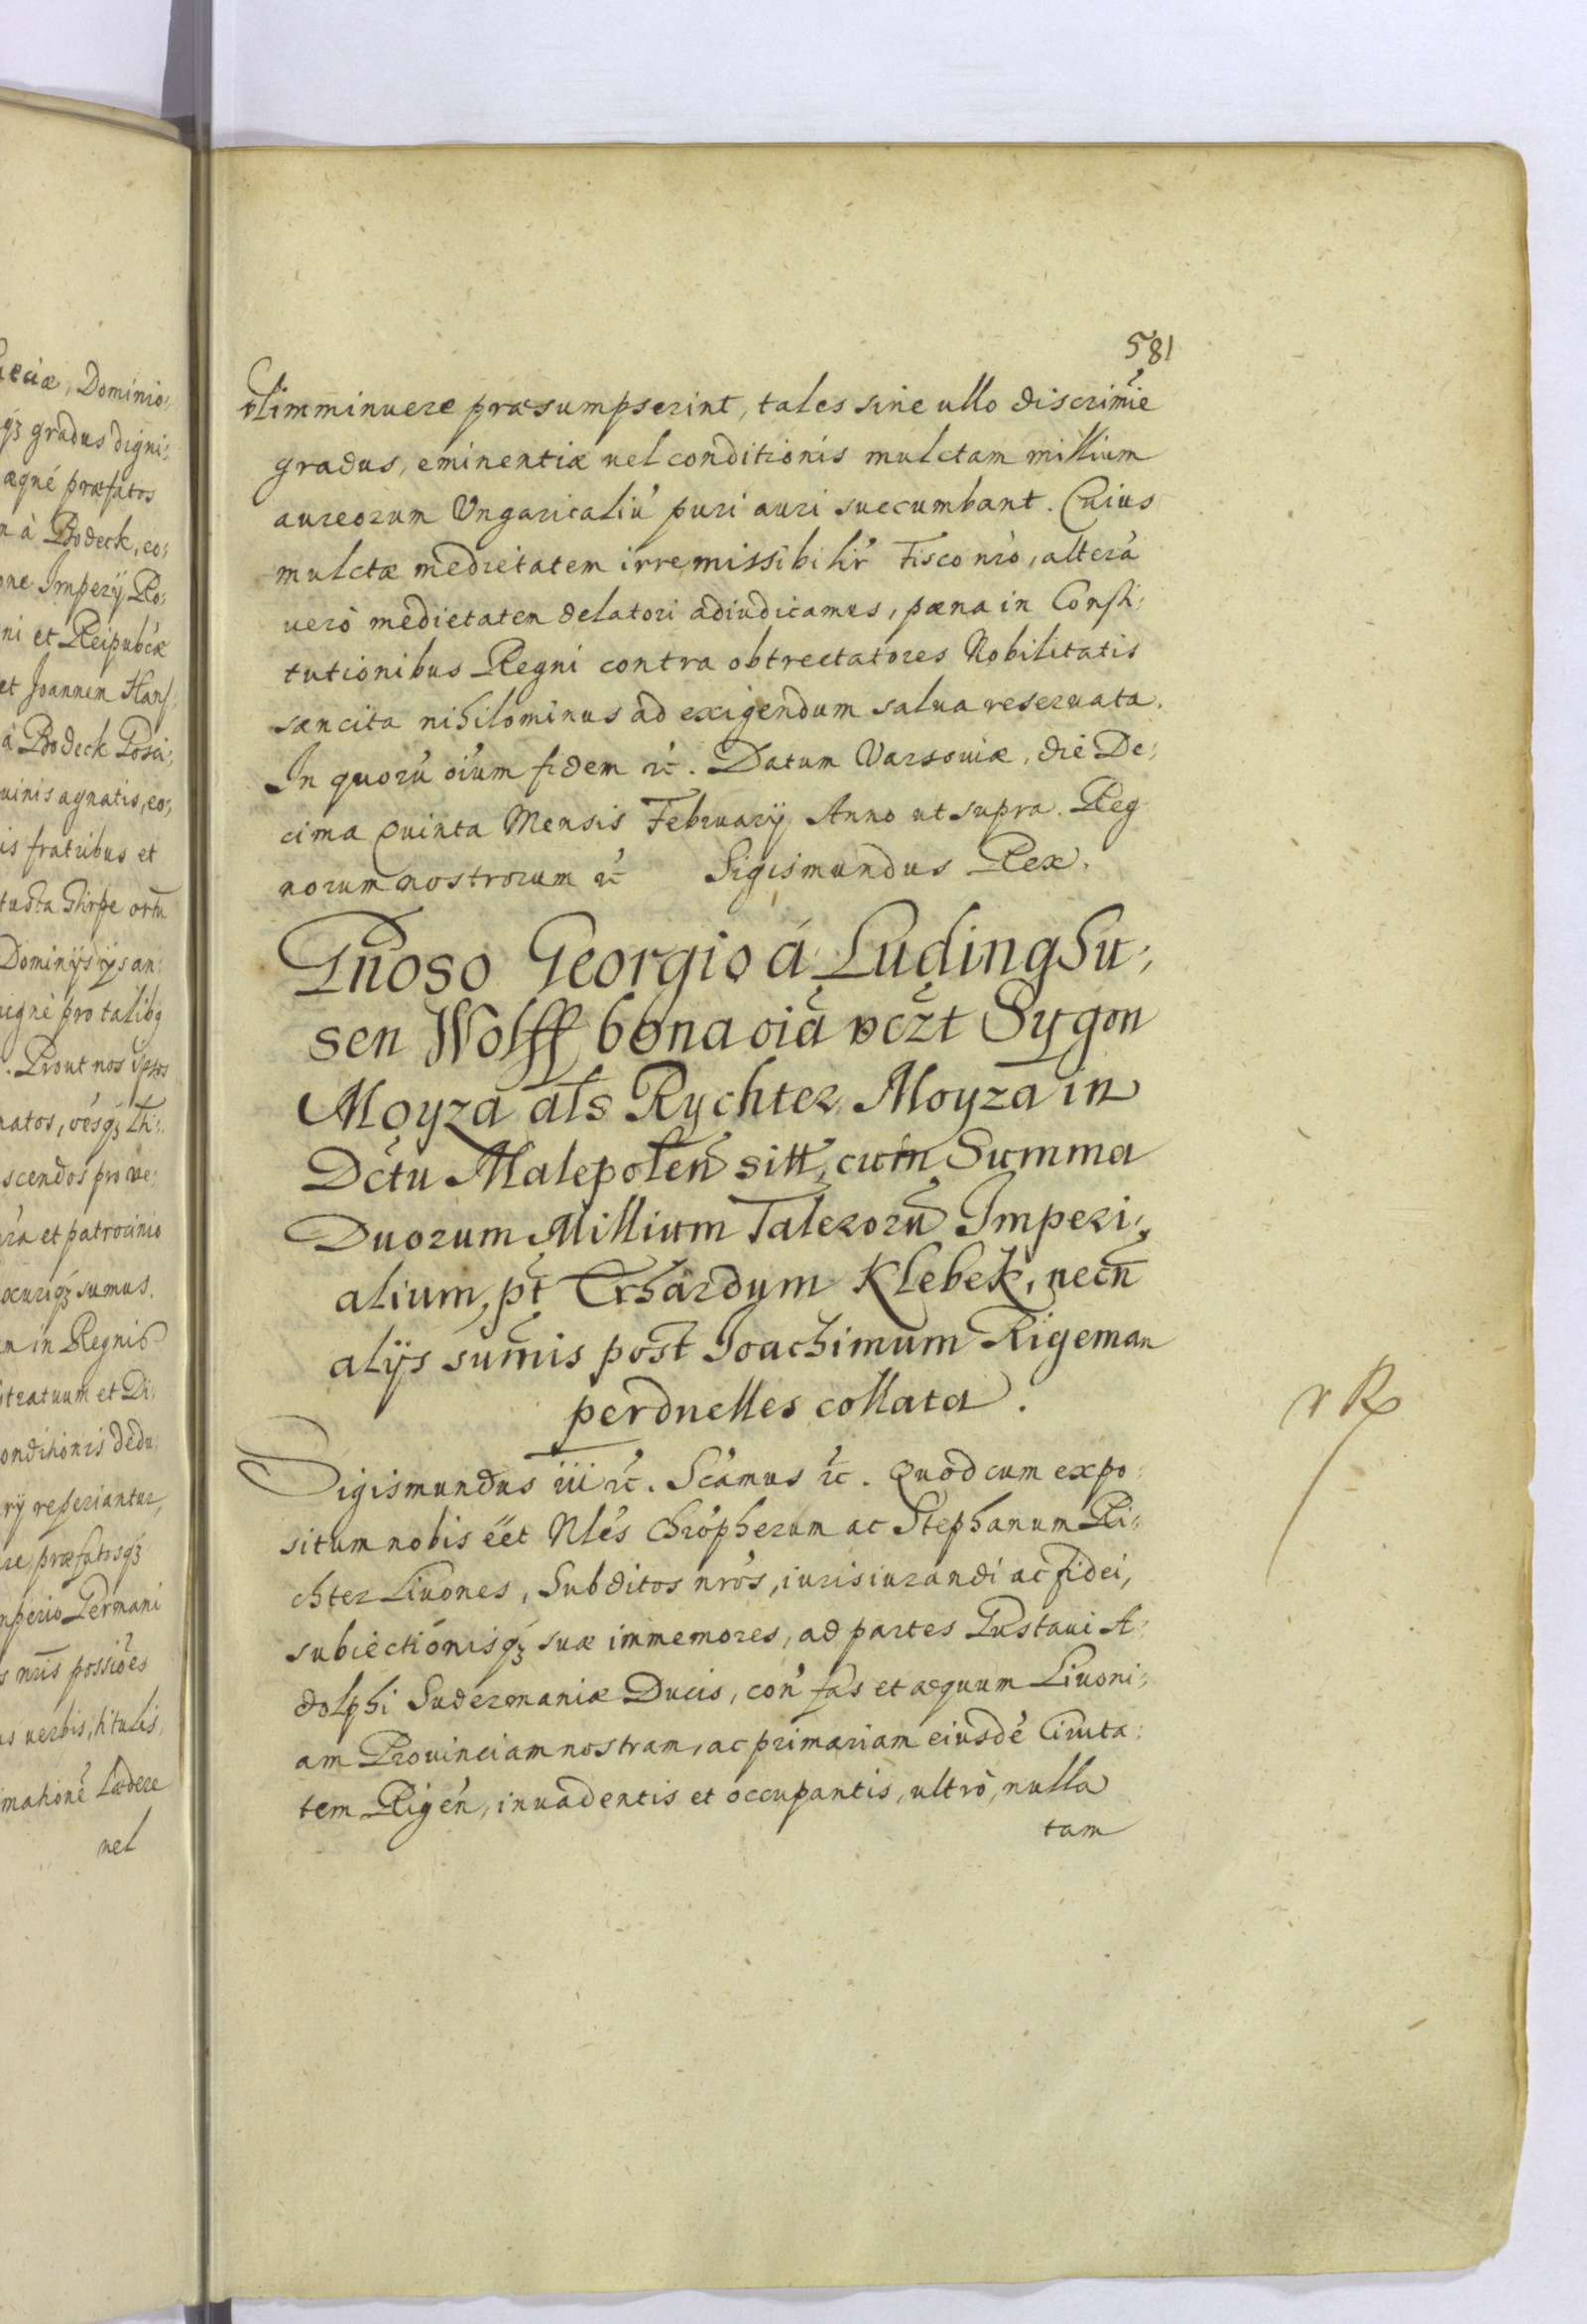 581
vel imminuere præsumpserint, tales sine ullo discrimīe
gradus, eminentiæ uel conditionis mulctam millium
aureorum Ungaricaliū puri auri succumbant. Cuius
mulctæ medietatem irremissibilīr Fisco nrō, alterā
uerò medietatem delatori adiudicamus, pæna in Consti:
tutionibus Regni contra obtrectatores Nobilitatis
sancita nihilominus ad exigendum salua reseruata.
In quorū oīum fidem &c. Datum Varsouiæ, die De:
cima Quinta Mensis February Anno ut supra. Reg
norum nostrorum &c Sigismundus Rex.
Gnōso Georgio á Luding Su:
sen Wolff bona oīa vczt Sygon
Moyza als Rychter Moyza in
Dctu Malepolen̄ sitt, cum Summa
Duorum Millium Talerorū Imperi:
alium, pt Erhardum Klebek, necn̄
alijs sum̄is post Joachimum Tigeman
perduelles collata.
Sigismundus iii &c. Scāmus &c. Quod cum expo:
situm nobis eēt Nlēs Chrōpherum ac Stephanum Ri:
chter Liuones, Subditos nrōs, iurisiurandi ac fidei,
subiectionisqꝫ suæ immemores, ad partes Gustaui A:
dolphi Sudermaniæ Ducis, con̄ fas et æquum Liuoni:
am Prouinciam nostram, ac primariam eiusdē Ciuita:
tem Rigen̄, inuadentis et occupantis, ultrò, nulla
tam
eciæ, Dominio:
qꝫ gradus digni:
æqué præfatos
à Bodeck, eo:
one Impery Ro:
ni et Reipubcæ
et Joannem Hans
à Bodeck
uinis agnatis, eo:
is fratribus et
tusta Stirpe ortū
Dominijs ijs an:
pro talibꝫ
. Prout nos ipsos
natos,
scendos pro ue:
et patrocinio
sumus.
m in Regnis
stratuum et Di:
onditionis dedu:
ry referiantur,
re, præfatosqꝫ
mperio Germani
s nris possiōes
is uerbis, titulis,
mationē lædere
uel